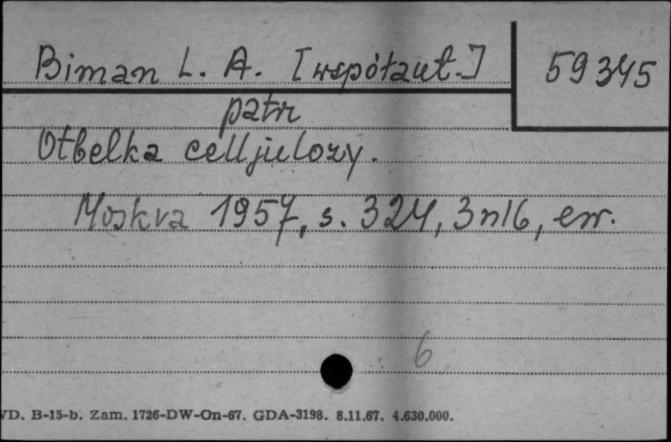 Biman L. A. [współaut.]
59345
patrz
Otbelka celljulozy.
Moskva 1957, s. 324, 3 nlb, err.
6
VD. B-15-b. Zam. 1726-DW-On-67. GDA-3198. 8.11.67. 4.630.000.